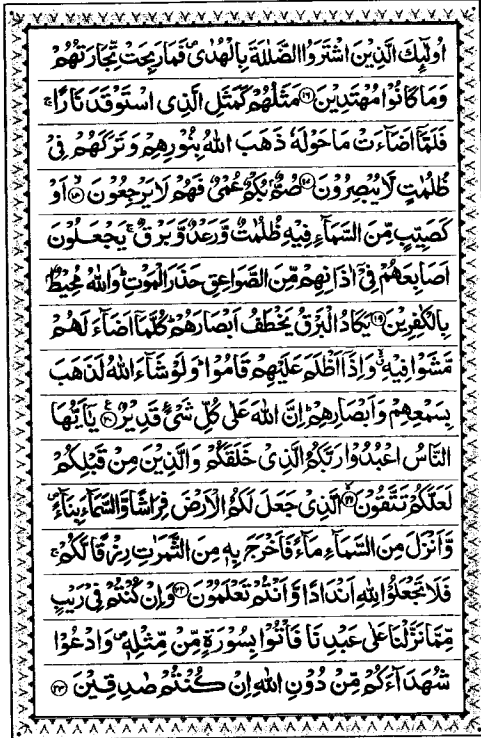 اُولٰٓئِكَ الَّذِيْنَ اشْتَرَوُا الضَّلٰلَةَ بِالْهُدٰى ۪ فَمَا رَبِحَتْ تِّجَارَتُهُمْ
وَمَا كَانُوْا مُهْتَدِيْنَ ﴿۱۶﴾ مَثَلُهُمْ كَمَثَلِ الَّذِى اسْتَوْقَدَ نَارًا ۚ
فَلَمَّآ اَضَآءَتْ مَا حَوْلَهٗ ذَهَبَ اللّٰهُ بِنُوْرِهِمْ وَتَرَكَهُمْ فِىْ
ظُلُمٰتٍ لَّا يُبْصِرُوْنَ ﴿۱۷﴾ صُمٌّۢ بُكْمٌ عُمْىٌ فَهُمْ لَا يَرْجِعُوْنَ ﴿۱۸﴾ اَوْ
كَصَيِّبٍ مِّنَ السَّمَآءِ فِيْهِ ظُلُمٰتٌ وَّرَعْدٌ وَّبَرْقٌ ۚ يَجْعَلُوْنَ
اَصَابِعَهُمْ فِىْٓ اٰذَانِهِمْ مِّنَ الصَّوَاعِقِ حَذَرَ الْمَوْتِ ؕ وَاللّٰهُ مُحِيْطٌۢ
بِالْكٰفِرِيْنَ ﴿۱۹﴾ يَكَادُ الْبَرْقُ يَخْطَفُ اَبْصَارَهُمْ ؕ كُلَّمَآ اَضَآءَ لَهُمْ
مَّشَوْا فِيْهِ ۙ وَاِذَآ اَظْلَمَ عَلَيْهِمْ قَامُوْا ؕ وَلَوْ شَآءَ اللّٰهُ لَذَهَبَ
بِسَمْعِهِمْ وَاَبْصَارِهِمْ ؕ اِنَّ اللّٰهَ عَلٰى كُلِّ شَىْءٍ قَدِيْرٌ ﴿۲۰﴾ يٰٓاَيُّهَا
النَّاسُ اعْبُدُوْا رَبَّكُمُ الَّذِىْ خَلَقَكُمْ وَالَّذِيْنَ مِنْ قَبْلِكُمْ
لَعَلَّكُمْ تَتَّقُوْنَ ﴿۲۱﴾ الَّذِىْ جَعَلَ لَكُمُ الْاَرْضَ فِرَاشًا وَّالسَّمَآءَ بِنَآءً ۪
وَّاَنْزَلَ مِنَ السَّمَآءِ مَآءً فَاَخْرَجَ بِهٖ مِنَ الثَّمَرٰتِ رِزْقًا لَّكُمْ ۚ
فَلَا تَجْعَلُوْا لِلّٰهِ اَنْدَادًا وَّاَنْتُمْ تَعْلَمُوْنَ ﴿۲۲﴾ وَاِنْ كُنْتُمْ فِىْ رَيْبٍ
مِّمَّا نَزَّلْنَا عَلٰى عَبْدِنَا فَاْتُوْا بِسُوْرَةٍ مِّنْ مِّثْلِهٖ ۪ وَادْعُوْا
شُهَدَآءَكُمْ مِّنْ دُوْنِ اللّٰهِ اِنْ كُنْتُمْ صٰدِقِيْنَ ﴿۲۳﴾